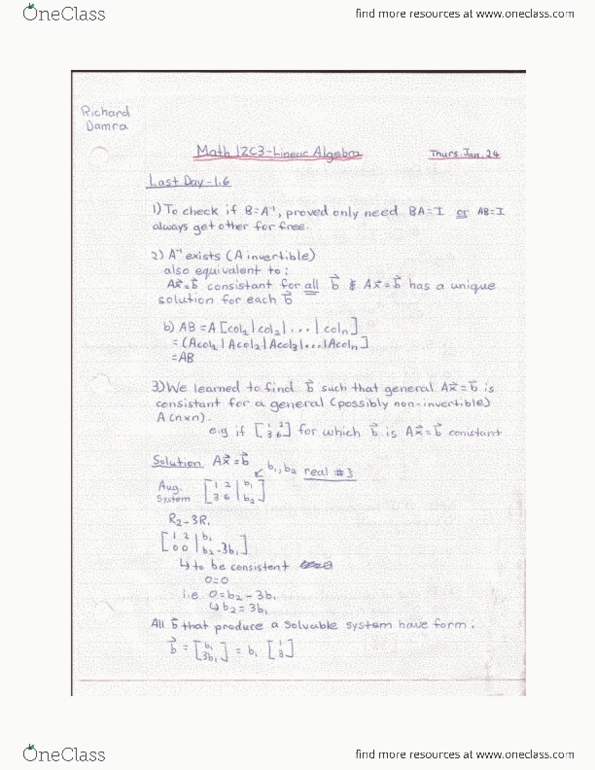 OneClass
find more resources at www.oneclass.com
Richard
Damra
Math 1ZC3-Linear Algebra
Thurs.Jan.24
Last Day-1.6
1) To check if B=A⁻¹, proved only need BA=I or AB=I
always get other for free.
2) A⁻¹ exists (A invertible)
also equivalent to:
Ax⃗=b⃗ consistant for all b⃗ & Ax⃗=b⃗ has a unique
solution for each b⃗
b) AB =A [col₂|col₂|...|colₙ]
=(Acol₂|Acol₂|Acol₃|...|Acolₙ]
=AB
3)We learned to find b⃗ such that general Ax⃗=b⃗ is
consistant for a general (possibly non-invertible)
A(n×n).
e.g if [1 2; 3 6] for which b⃗ is Ax⃗=b⃗ constant
Solution Ax⃗=b⃗
↙ b₁,b₂ real #3
Aug.
System [1 2 | b₁; 3 6 | b₂]
R₂-3R₁
[1 2 | b₁; 0 0 | b₂-3b₁]
↳to be consistent
0=0
i.e 0=b₂-3b₁
↳b₂=3b₁
All b⃗ that produce a solvable system have form.
b⃗ = [b₁; 3b₁] = b₁ [1; 3]
OneClass
find more resources at www.oneclass.com